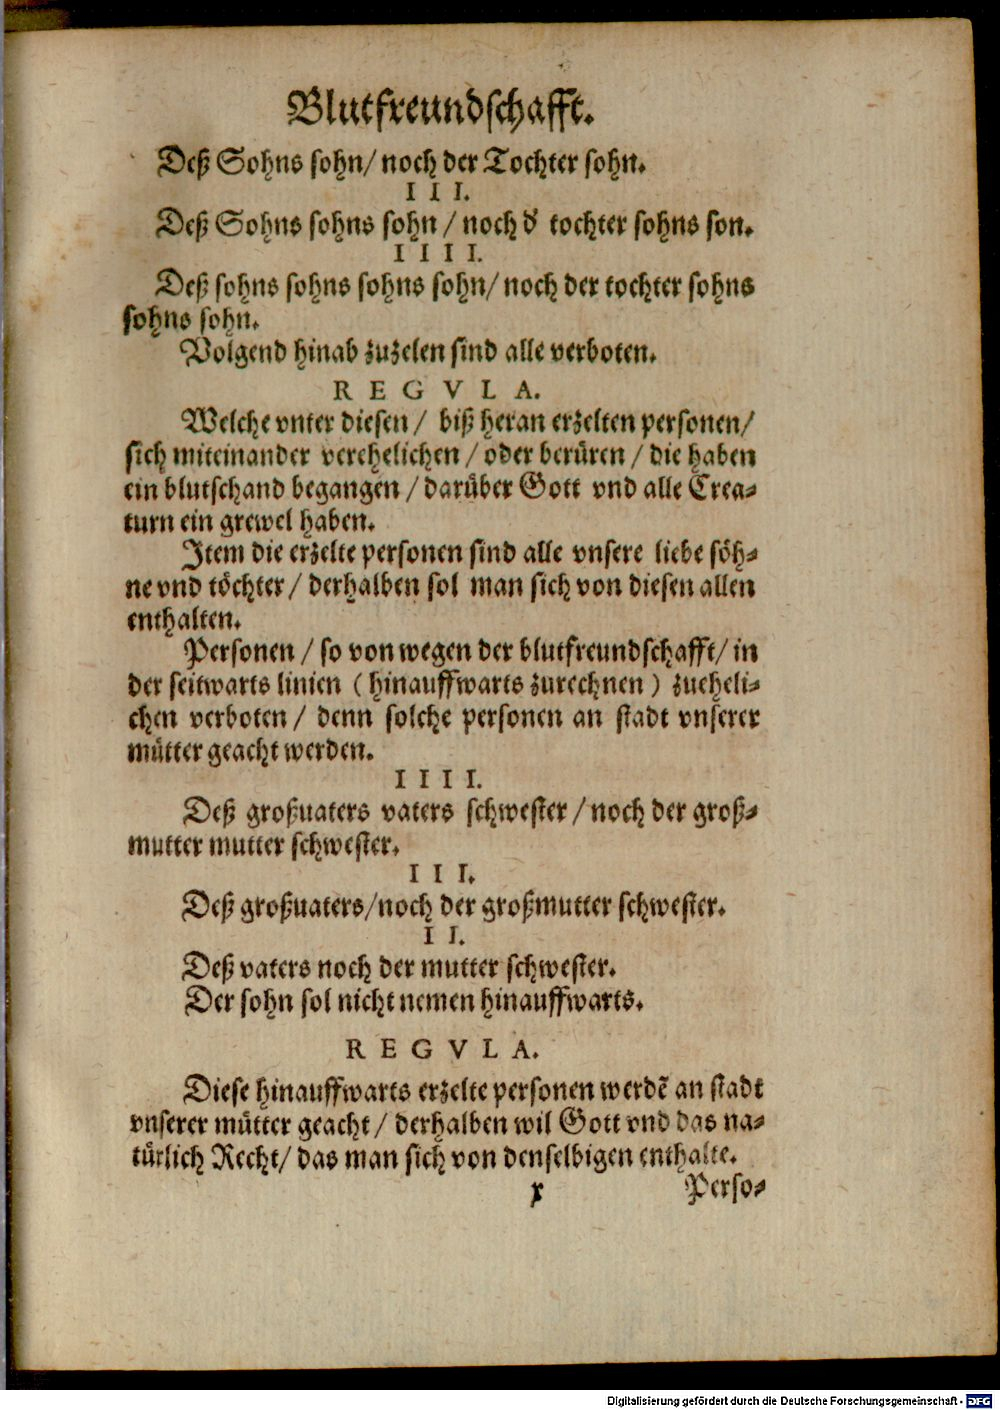 Blutfreundschafft.
Deß Sohns sohn/ noch der Tochter sohn.
I I I.
Deß Sohns sohns sohn / noch d' tochter sohns son.
I I I I.
Deß sohns sohns sohns sohn/ noch der tochter sohns
sohns sohn.
Volgend hinab zuzelen sind alle verboten.
R E G V L A.
Welche vnter diesen / biß heran erzelten personen/
sich miteinander verehelichen / oder berüren / die haben
ein blutschand begangen / darüber Gott vnd alle Crea⸗
turn ein grewel haben.
Item die erzelte personen sind alle vnsere liebe söh⸗
ne vnd töchter / derhalben sol man sich von diesen allen
enthalten.
Personen / so von wegen der blutfreundschafft/ in
der seitwarts linien ( hinauffwarts zurechnen ) zueheli⸗
chen verboten / denn solche personen an stadt vnserer
mütter geacht werden.
I I I I.
Deß großuaters vaters schwester / noch der groß⸗
mutter mutter schwester.
I I I.
Deß großuaters/noch der großmutter schwester.
I I.
Deß vaters noch der mutter schwester.
Der sohn sol nicht nemen hinauffwarts.
R E G V L A.
Diese hinauffwarts erzelte personen werdē an stadt
vnserer mütter geacht / derhalben wil Gott vnd das na⸗
türlich Recht/ das man sich von denselbigen enthalte.
x Perso⸗
Digitalisierung gefördert durch die Deutsche Forschungsgemeinschaft - DFG